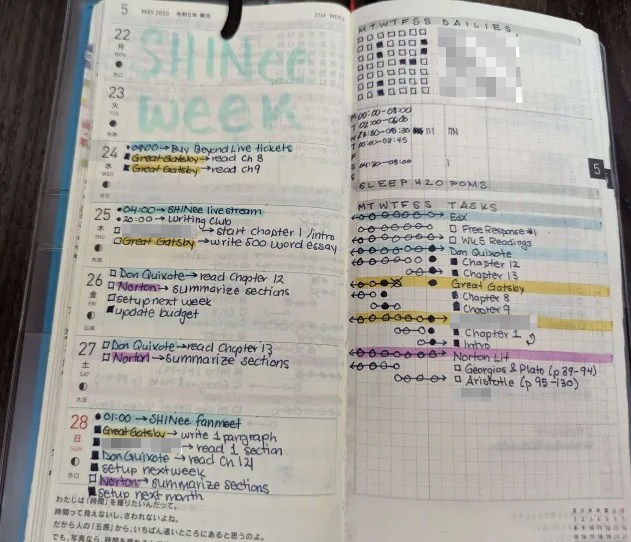 5 MAY 2023 令和5年 皐月 21st WEEK
22
月
MON
SHINee
23
火
TUE
week
24
水
WED
09:00→Buy Beyond Live tickets
Great Gatsby→read Ch 8
Great Gatsby→read ch9
25
木
THU
04:00→SHINee livestream
20:00→Writing Club
→start chapter 1/intro
Great Gatsby→write 500 word essay
26
金
FRI
仏滅
Don Quixote→read Chapter 12
Norton→summarize sections
setup next week
update budget
27
土
SAT
大安
Don Quixote→read Chapter 13
Norton→summarize sections
28
日
SUN
赤口
01:00→SHINee fanmeet
Great Gatsby→write 1 paragraph
→read 1 section
Don Quixote→read Ch 12
setup next week
Norton→summarize sections
setup next month
わたしは「時間」を撮りたいんだって。
時間って見えないし、さわれないよね。
だから人の「五感」から、いちばん遠いところにあると思うのよ。
MTWTFSS DAILIES
M 00:00-08:00
T 02:00-06:00
W
T 00:00-08:45
F
S 04:30-08:00
S
SLEEP H2O POMS
5
MTWTFSS TASKS
EdX
Free Response #1
Wk5 Readings
Don Quixote
Chapter 12
Chapter 13
Great Gatsby
Chapter 8
Chapter 9
Chapter 1
Intro
Norton Lit
Georgios & Plato (p 39-94)
Aristotle (p 95-130)